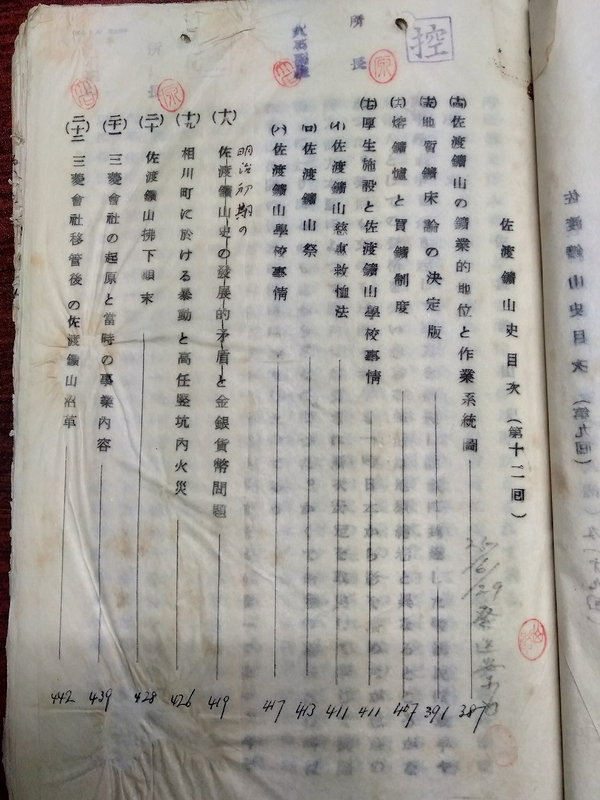 控
所長
佐渡鑛山史目次 (第十二囘)
(十四)佐渡鑛山の鑛業的地位と作業系統圖 387
(十五)地質鑛床論の決定版 391
(十六)熔鑛爐と買鑛制度 407
(十七)厚生施設と佐渡鑛山學校事情 411
(イ)佐渡鑛山慈惠救恤法 411
(ロ)佐渡鑛山祭 413
(ハ)佐渡鑛山學校事情 417
明治初期の
(十八)佐渡鑛山史の發展的矛盾と金銀貨幣問題 419
(十九)相川町に於ける暴動と高任竪坑內火災 426
(二十)佐渡鑛山拂下顚末 428
(二十一)三菱會社の起原と當時の事業內容 439
(二十二)三菱會社移管後の佐渡鑛山沿革 442
佐渡鑛山史目次 (第九囘)